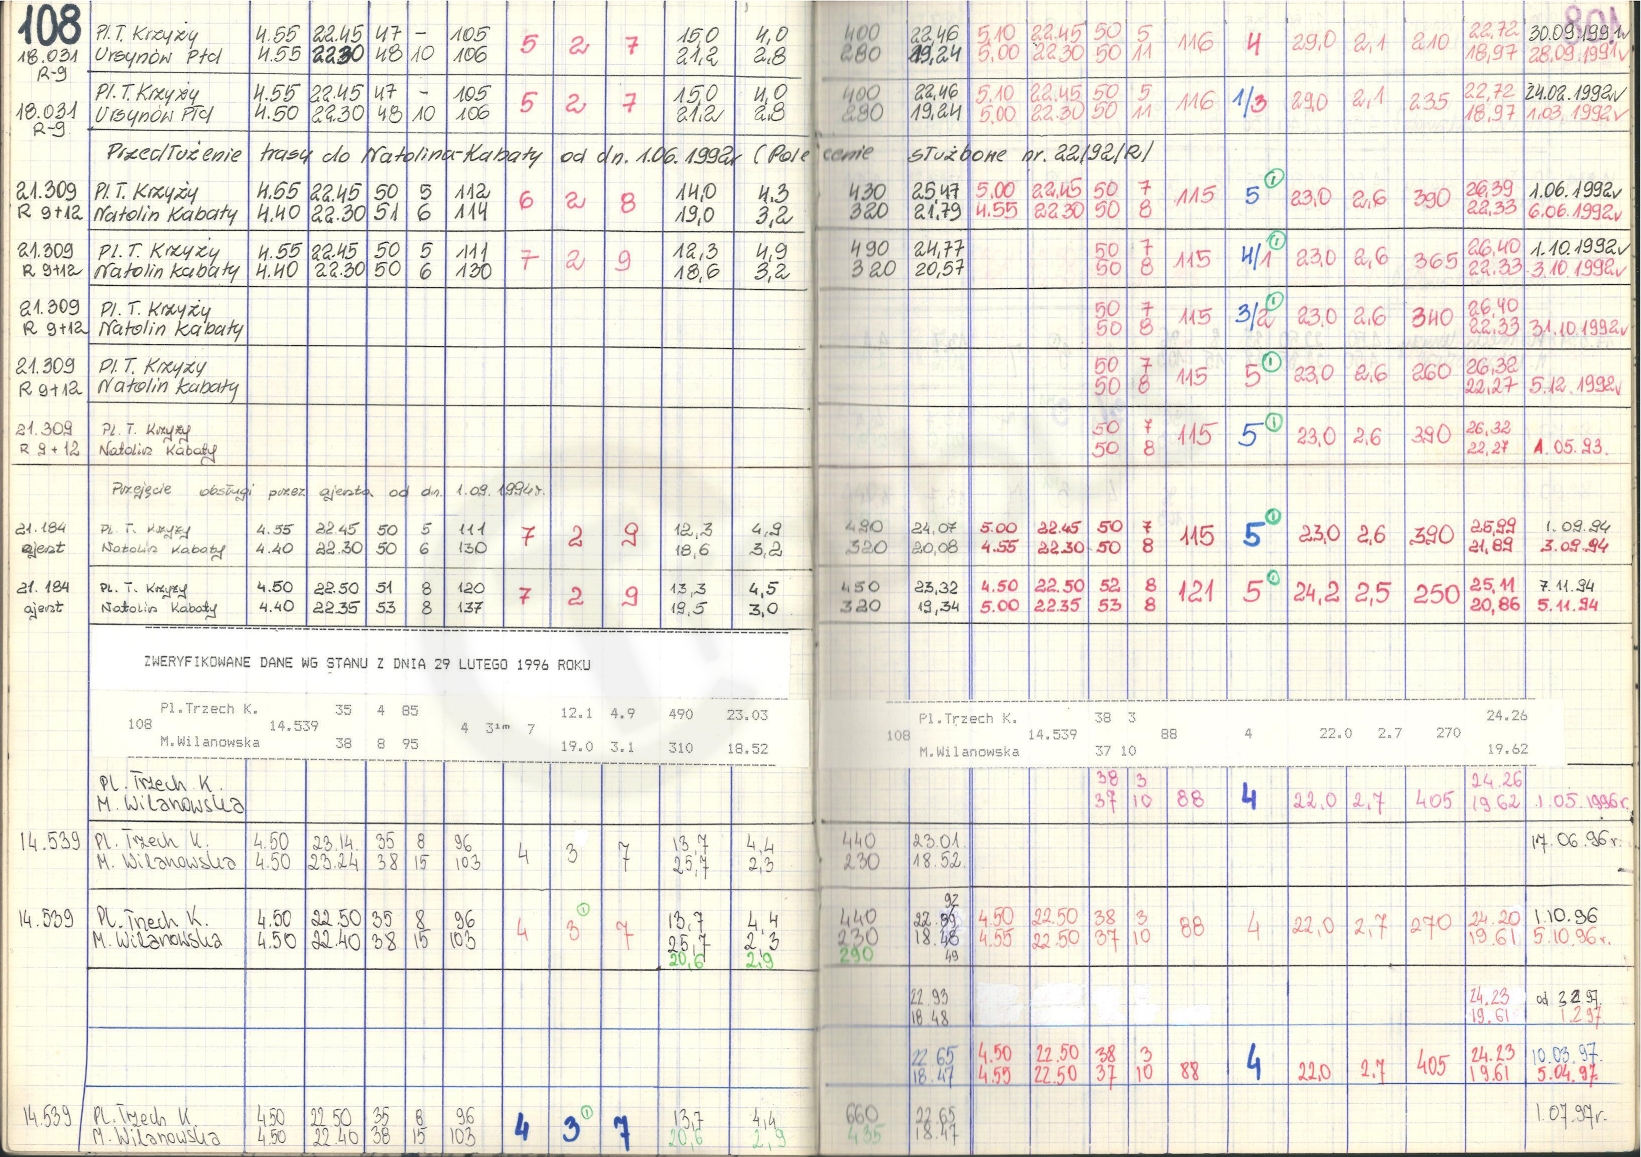 108 Pl. T. Krzyży 4.55 22.45 47 - 105 5 2 7 15,0 4,0 400 22,46 5.10 22.45 50 5 116 4 29,0 2,1 210 22,72 30.09.1991
18.031 Ursynów Płd 4.55 22.30 48 10 106 21,2 2,8 280 19,24 5.00 22.30 50 11 18,97 28.09.1991
R-9
Pl. T. Krzyży 4.55 22.45 47 - 105 5 2 7 15,0 4,0 400 22,46 5.10 22.45 50 5 116 1/3 29,0 2,1 235 22,72 24.02.1992
18.031 Ursynów Płd 4.50 22.30 48 10 106 21,2 2,8 290 19,24 5.00 22.30 50 11 18,97 1.03.1992
R-9
Przedłużenie trasy do Natolina-Kabaty od dn. 1.06.1992r (Polecenie służbowe nr. 22/92/R)
21.309 Pl. T. Krzyży 4.55 22.45 50 5 112 6 2 8 14,0 4,3 430 25,47 5.00 22.45 50 7 115 5 1 23,0 2,6 390 26,39 1.06.1992
R 9+12 Natolin Kabaty 4.40 22.30 51 6 114 19,0 3,2 320 21,79 4.55 22.30 50 8 22,33 6.06.1992
21.309 Pl. T. Krzyży 4.55 22.45 50 5 111 7 2 9 12,3 4,9 490 24,77 50 7 115 4/1 1 23,0 2,6 365 26,40 1.10.1992
R 9+12 Natolin Kabaty 4.40 22.30 50 6 130 18,6 3,2 320 20,57 50 8 22,33 3.10.1992
21.309 Pl. T. Krzyży 50 7 115 3/2 1 23,0 2,6 340 26,40
R 9+12 Natolin Kabaty 50 8 22,33 31.10.1992
21.309 Pl. T. Krzyży 50 7 115 5 1 23,0 2,6 260 26,32
R 9+12 Natolin Kabaty 50 8 22,27 5.12.1992
21.309 Pl. T. Krzyży 50 7 115 5 1 23,0 2,6 390 26,32
R 9+12 Natolin Kabaty 50 8 22,27 1.05.93.
Przejęcie obsługi przez ajenta od dn. 1.09.1994r.
21.184 Pl. T. Krzyży 4.55 22.45 50 5 111 7 2 9 12,3 4,9 490 24,07 5.00 22.45 50 7 115 5 1 23,0 2,6 390 25,99 1.09.94
ajent Natolin Kabaty 4.40 22.30 50 6 130 18,6 3,2 320 20,08 4.55 22.30 50 8 21,89 3.09.94
21.184 Pl. T. Krzyży 4.50 22.50 51 8 120 7 2 9 13,3 4,5 450 23,32 4.50 22.50 52 8 121 5 1 24,2 2,5 250 25,11 7.11.94
ajent Natolin Kabaty 4.40 22.35 53 8 137 19,5 3,0 320 19,34 5.00 22.35 53 8 20,86 5.11.94
ZWERYFIKOWANE DANE WG STANU Z DNIA 29 LUTEGO 1996 ROKU
Pl.Trzech K. 35 4 85 12.1 4.9 490 23.03 Pl.Trzech K. 38 3 24.26
108 14.539 4 3¹ᵐ 7 108 14.539 88 4 22.0 2.7 270
M.Wilanowska 38 8 95 19.0 3.1 310 18.52 M.Wilanowska 37 10 19.62
Pl. Trzech K. 38 3 24.26
M. Wilanowska 37 10 88 4 22,0 2,7 405 19,62 1.05.1996r.
14.539 Pl. Trzech K. 4.50 23.14. 35 8 96 4 3 7 13,7 4,4 440 23.01. 17.06.96r.
M. Wilanowska 4.50 23.24 38 15 103 25,7 2,3 230 18.52.
92
14.539 Pl. Trzech K. 4.50 22.50 35 8 96 4 3 1 7 13,7 4,4 440 22.39 4.50 22.50 38 3 88 4 22,0 2,7 270 24.20 1.10.96
M. Wilanowska 4.50 22.40 38 15 103 25,7 2,3 230 18.48 4.55 22.50 37 10 19.61 5.10.96r.
20,6 2,9 290 49
22.93 24.23 od
18.48 19.61 1.2.97
22.65 4.50 22.50 38 3 88 4 22,0 2.7 405 24.23 10.03.97.
18.47 4.55 22.50 37 10 19.61 5.04.97.
14.539 Pl. Trzech K 4.50 22.50 35 8 96 4 3 1 7 13,7 4,4 660 22.65 1.07.97r.
M. Wilanowska 4.50 22.40 38 15 103 20,6 2,9 435 18.47